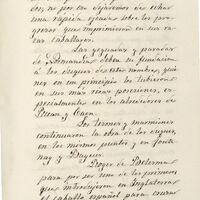 dos; no por eso dejaremos de echar
una rápida ojeada sobre los pro-
gresos que imprimieron en sus ra-
zas caballares.
Las yeguadas y paradas
de Normandía deben su fundación
á los duques de este nombre, quie-
nes en un principio las tubieron
en sus más ricas posesiones, es-
pecialmente en los alrededores de
Rouen y Caen.
Los barones y
continuaron la obra de los duques,
en los mismos puntos y en
y Bayeux.
Roger de
pasa por ser uno de los primeros
que introdujeron en Inglaterra
el caballo español para cruzar